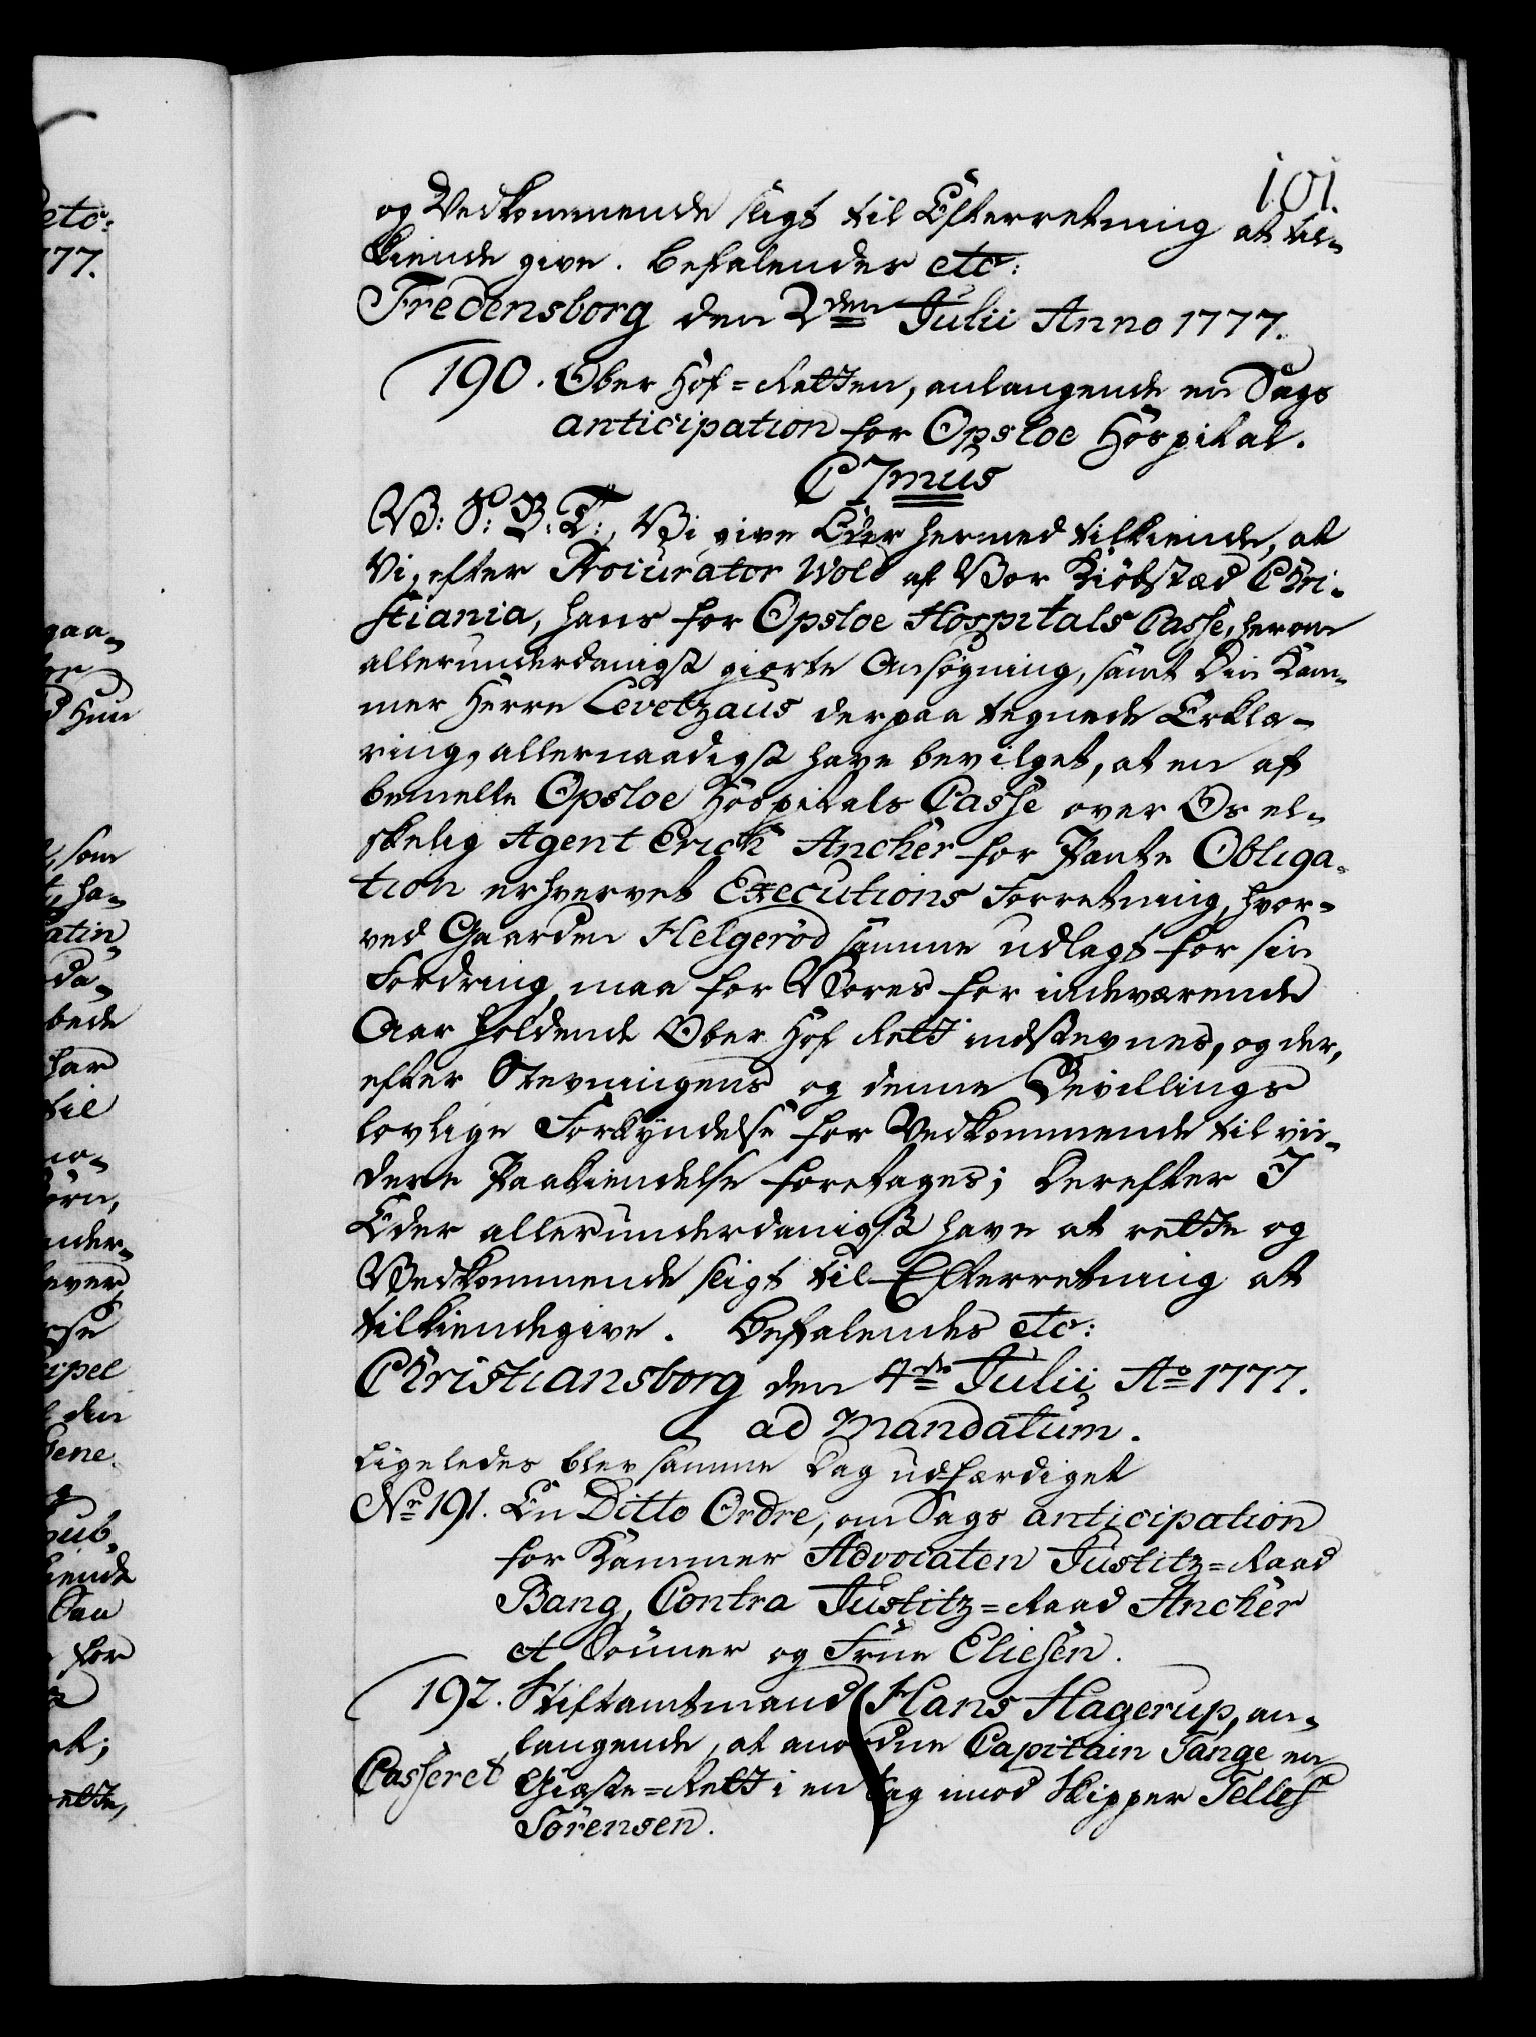 101.
og Vedkommende sligt til Efterretning at til-
kiende give. Befalendes etc:
Fredensborg den 2den Julii Anno 1777.
190. Ober Hof-Retten, anlangende en Sags
anticipation for Opsloe Hospital.
C 7mus
V: S: B: T:, Vi give Eder hermed tilkiende, at
Vi, efter Procurator Wold af Vor Kiöbstæd Chri-
stiania, hans for Opsloe Hospitals Casse, herom
allerunderdanigst giorte Ansøgning, samt Din Kam-
mer Herre Levetzaus derpaa tegnede Erklæ-
ring, allernaadigst have bevilget, at en af
bemelte Opsloe Hospitals Casse over Os el-
skelig Agent Erich Ancher for Pante Obliga-
tion erhvervet Executions Forretning, hvor-
ved Gaarden Helgeröd samme udlagt for sin
Fordring, maa for Vores for indeværende
Aar holdende Ober Hof Rett indstevnes, og der,
efter Stevningens og denne Bevillings
lovlige Forkyndelse for Vedkommende til vii-
dere Paakiendelse foretages; Derefter I
Eder allerunderdanigst have at rette og
Vedkommende sligt til Efterretning at
tilkiendegive. Befalendes etc:
Christiansborg den 4de Julii Ao 1777.
ad Mandatum.
Ligeledes blev samme Dag udfærdiget
No 191. En Ditto Ordre, om Sags anticipation
for Kammer Advocaten Justitz-Raad
Bang, Contra Justitz-Raad Ancher
et Sönner og Frue Eliesen.
192. Stiftamtmand Hans Hagerup, an-
langende, at anordne Capitain Tange en
Casseret Giæste-Rett i en Sag imod Skipper Tellef
Sörensen.
eto:
777.
gaa-
Hun
som
ha-
atin-
da-
bede
har
til
örn,
nder-
lever
ipel
den
Gene.
pub.
kiende
for
at;
rette,